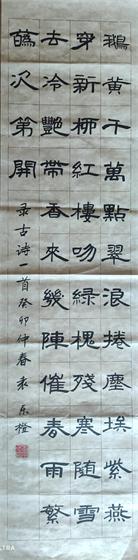 鵝黄千萬點翠浪捲塵埃紫燕
穿新栁紅樓吻緑槐殘寒随雪
去冷艷帶香來幾陣催春雨繁
次第開
录古诗一首癸卯仲春袁东